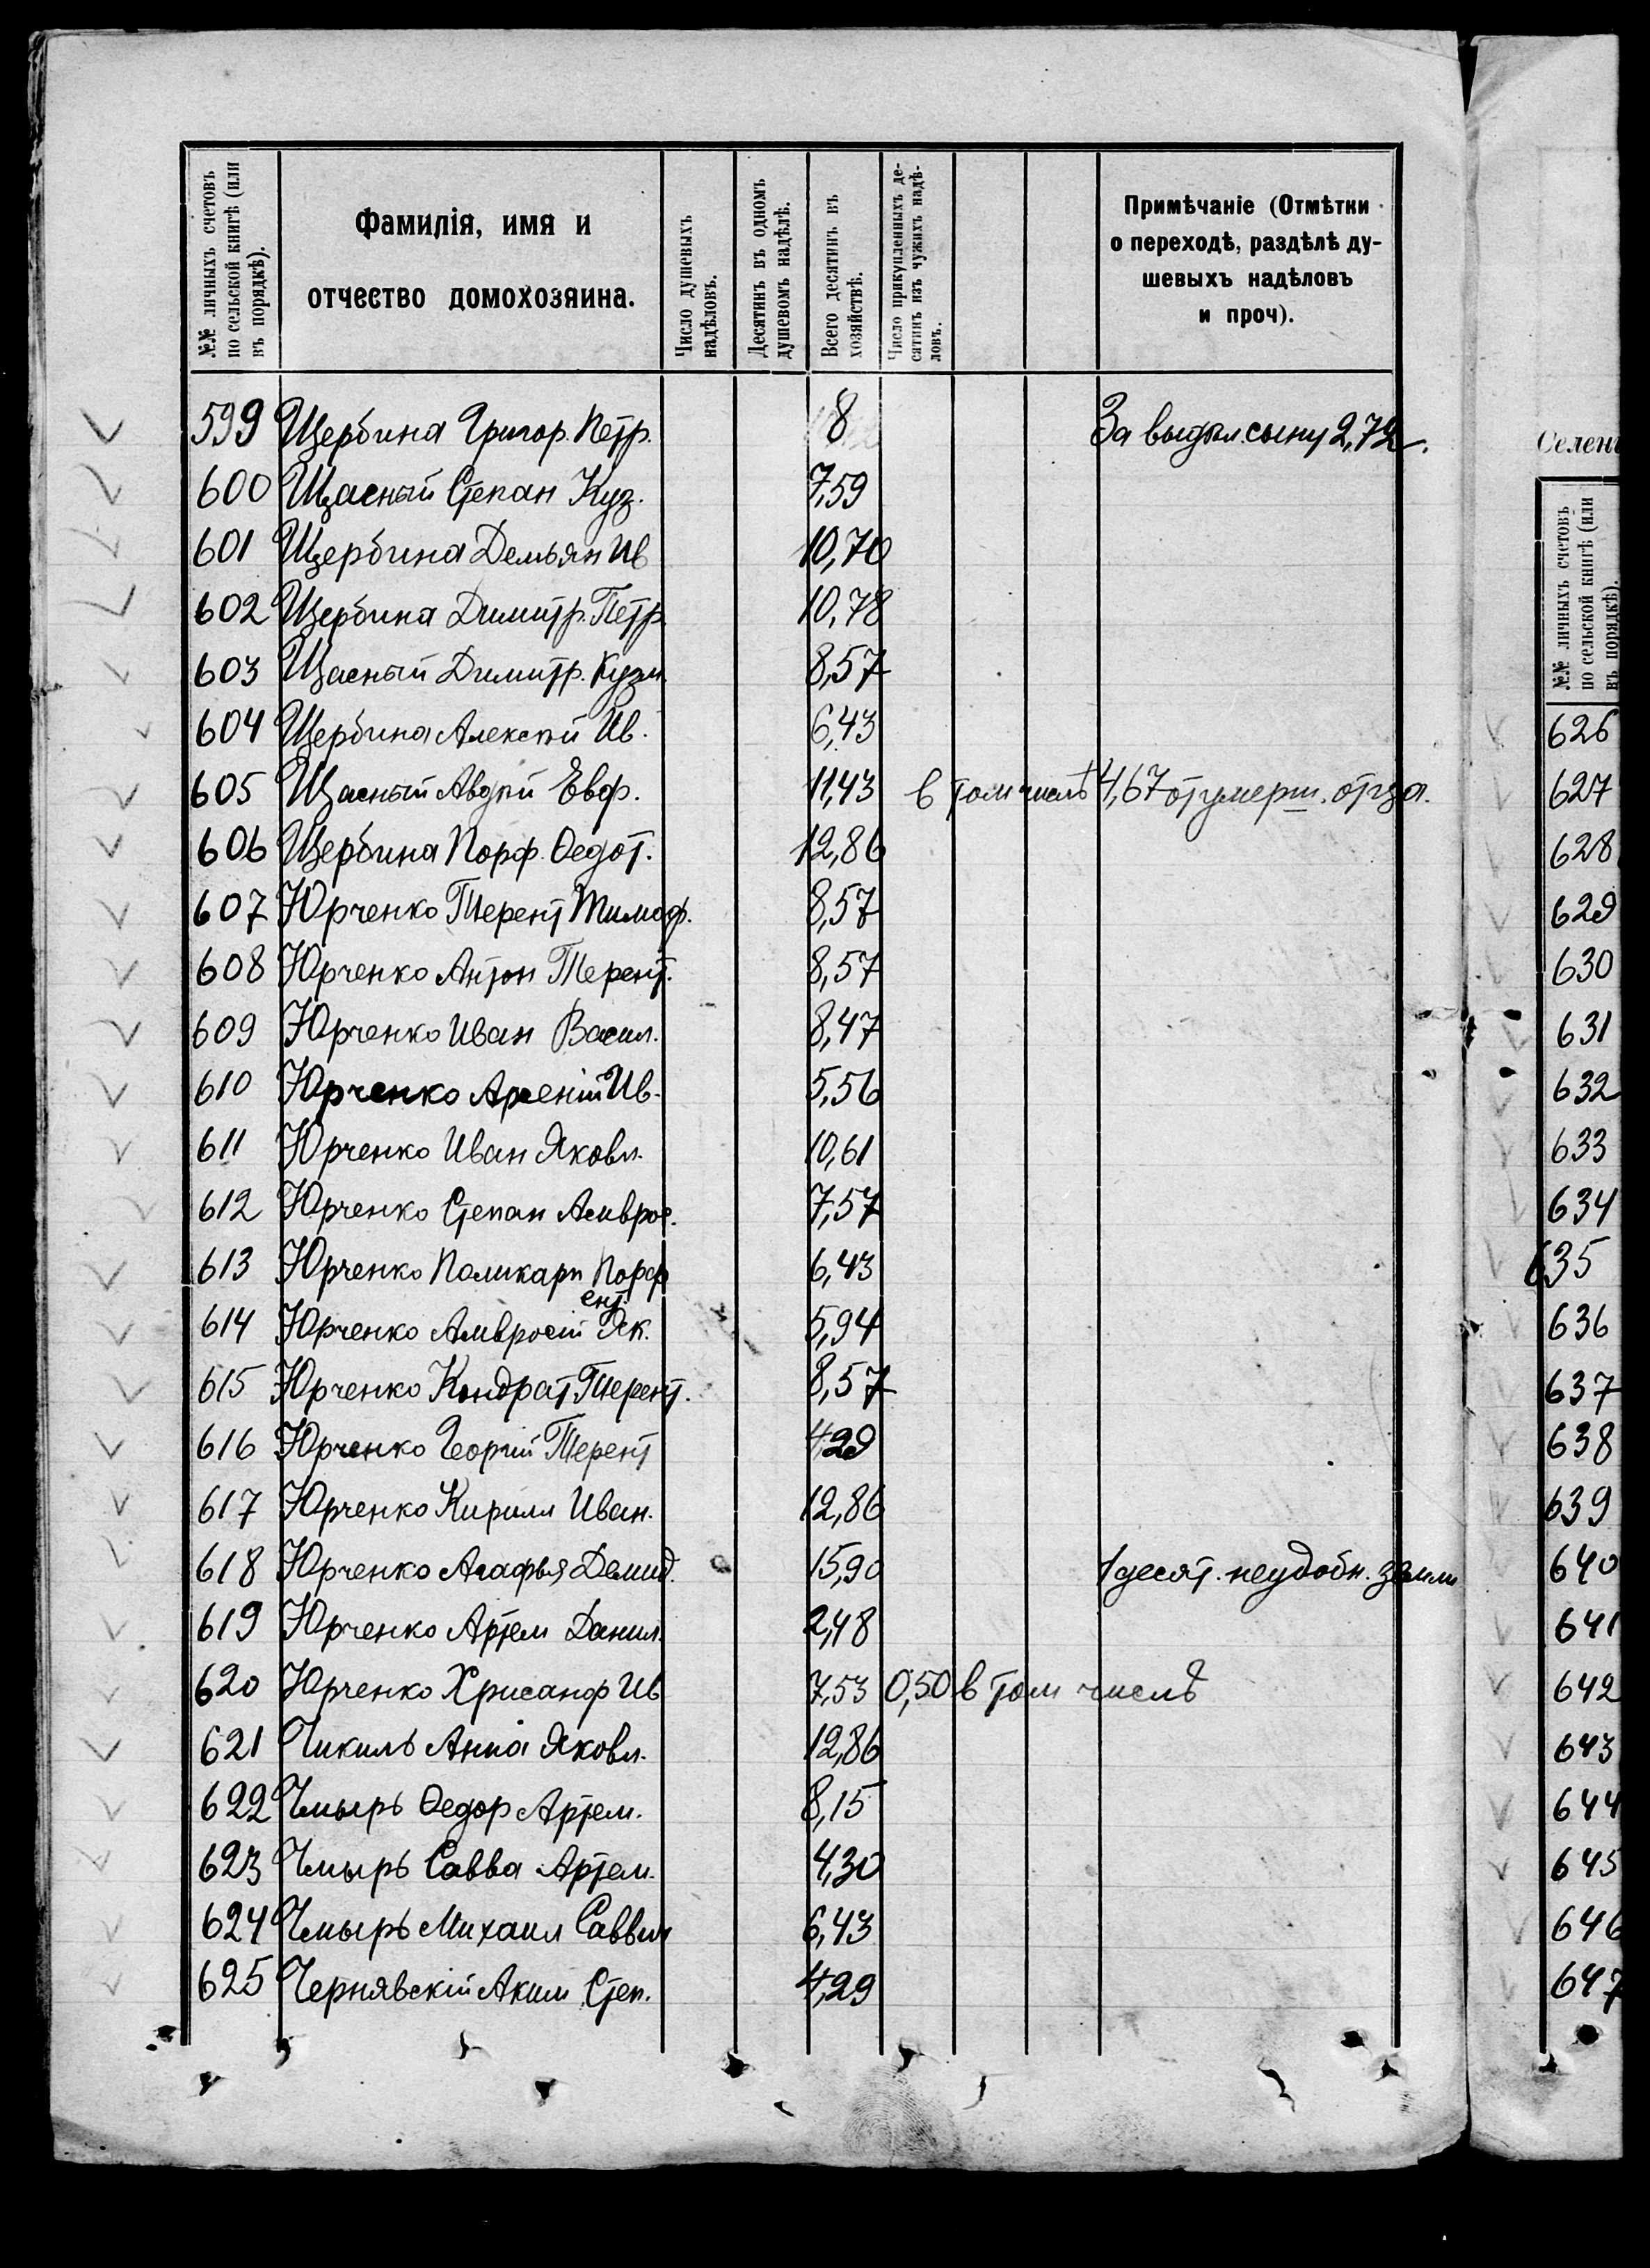 №№ личныхъ счетовъ по сельской книгѣ (или въ порядкѣ).
Фамилія, имя и отчество домохозяина.
Число душевыхъ надѣловъ.
Десятинъ въ одномъ душевомъ надѣлѣ.
Всего десятинъ въ хозяйствѣ.
Число прикупленныхъ десятинъ изъ чужихъ надѣловъ.
Примѣчаніе (Отмѣтки о переходѣ, раздѣлѣ душевыхъ надѣловъ и проч).
599 Щербина Григор. Петр. 8 За выдѣл. сыну 2,72.
600 Щасный Степан Куз. 7,59
601 Щербина Демьян Ив 10,70
602 Щербина Димитр. Петр. 10,78
603 Щасный Димитр. Кузм. 8,57
604 Щербина Алексѣй Ив. 6,43
605 Щасный Авдѣй Евф. 11,43 в том числѣ 4,67 от умерш. отца.
606 Щербина Порф. Ѳедот. 12,86
607 Юрченко Терент Тимоф. 8,57
608 Юрченко Антон Терент. 8,57
609 Юрченко Иван Васил. 8,47
610 Юрченко Арсеній Ив. 5,56
611 Юрченко Иван Яковл. 10,61
612 Юрченко Степан Амврос. 7,57
613 Юрченко Поликарп Порф 6,43
ент.
614 Юрченко Амвросій Як. 5,94
615 Юрченко Кондрат Терент. 8,57
616 Юрченко Георгій Терент 4,29
617 Юрченко Кирилл Иван. 12,86
618 Юрченко Агафья Демид. 15,90 1 десят. неудобн. земли
619 Юрченко Артем Данил. 2,48
620 Юрченко Хрисанф Ив 7,53 0,50 в том числѣ
621 Чикиль Анна Яковл. 12,86
622 Чмырь Ѳедор Артем. 8,15
623 Чмырь Савва Артем. 4,30
624 Чмырь Михаил Саввич 6,43
625 Чернявскій Аким Степ. 4,29
Селені
№№ личныхъ счетовъ по сельской книгѣ (или въ порядкѣ).
626
627
628
629
630
631
632
633
634
635
636
637
638
639
640
641
642
643
644
645
646
647